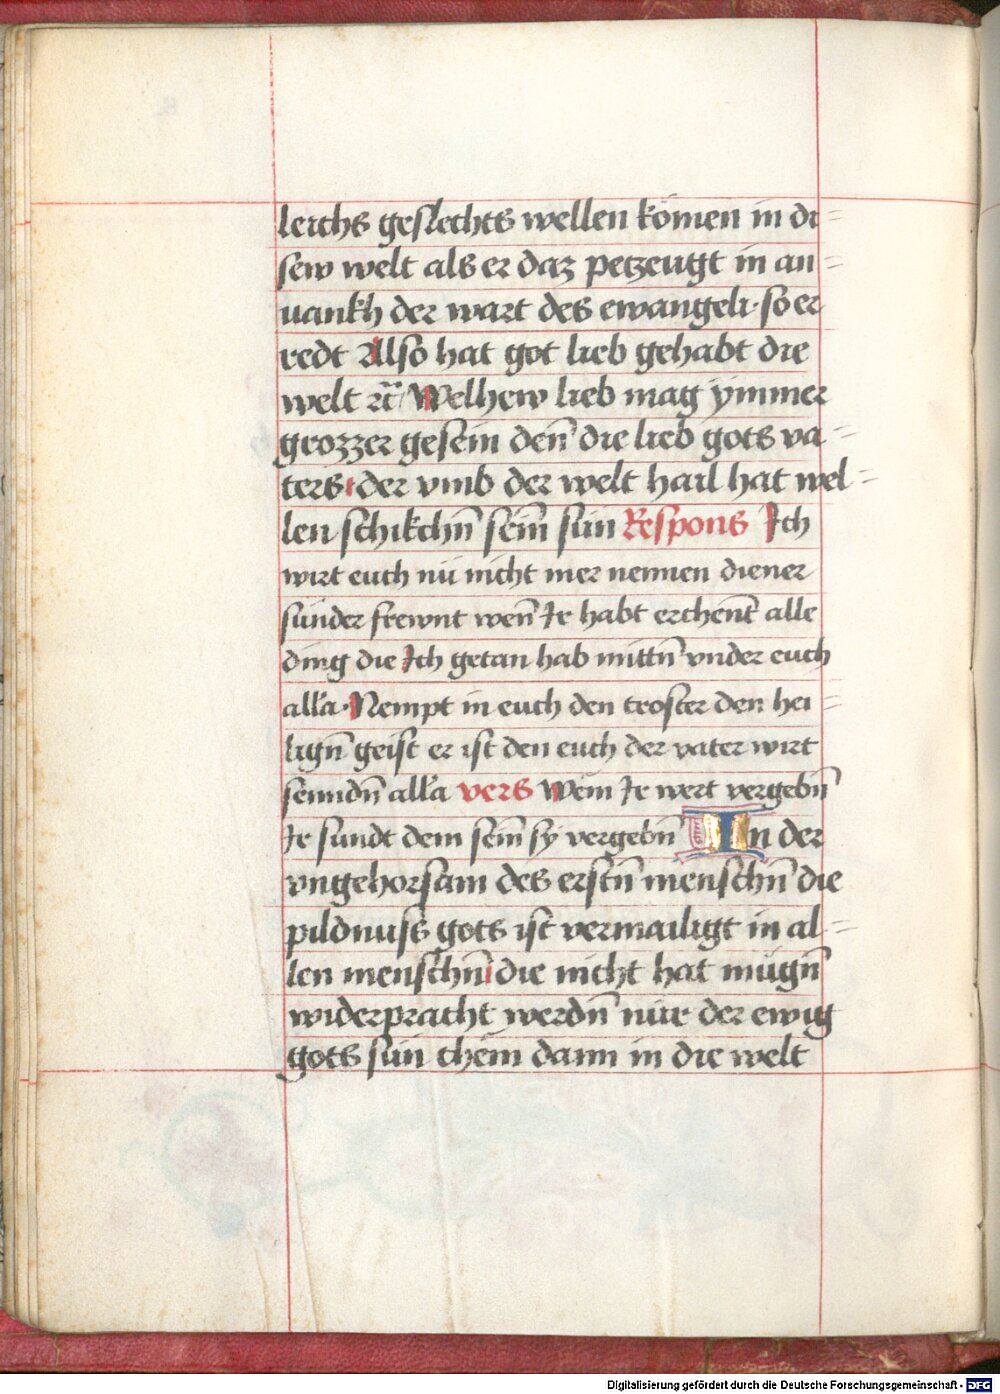 leichs geslechts wellen komen in di=
sew welt als er daz petzeugt in an=
uankh der wart des ewangeli· so er
redt Also hat got lieb gehabt die
welt ⁊c̄ Welhew lieb mag ymmer
grozzer gesein den̄ die lieb gots va=
ters· der vmb der welt hail hat wel=
len schikchn̄ sein̄ sun Respons Ich
wirt euch nu nicht mer nennen diener
sunder frewnt wen̄ Ir habt erchent̄ alle
ding die Ich getan hab mittn̄ vnder euch
all'a· Nempt in euch den troster den hei=
lign̄ geist er ist den euch der vater wirt
senndn̄ all'a vers Wem Ir wert vergebn̄
Ir sundt dem sein̄ sy vergebn̄ In der
vngehorsam des erstn̄ menschn̄ die
pildnuss gots ist vermailigt in al=
len menschn̄ die nicht hat mügn̄
widerpracht werdn̄ nur der ewig
gots sun chem dann in die welt
Digitalisierung gefördert durch die Deutsche Forschungsgemeinschaft - DFG